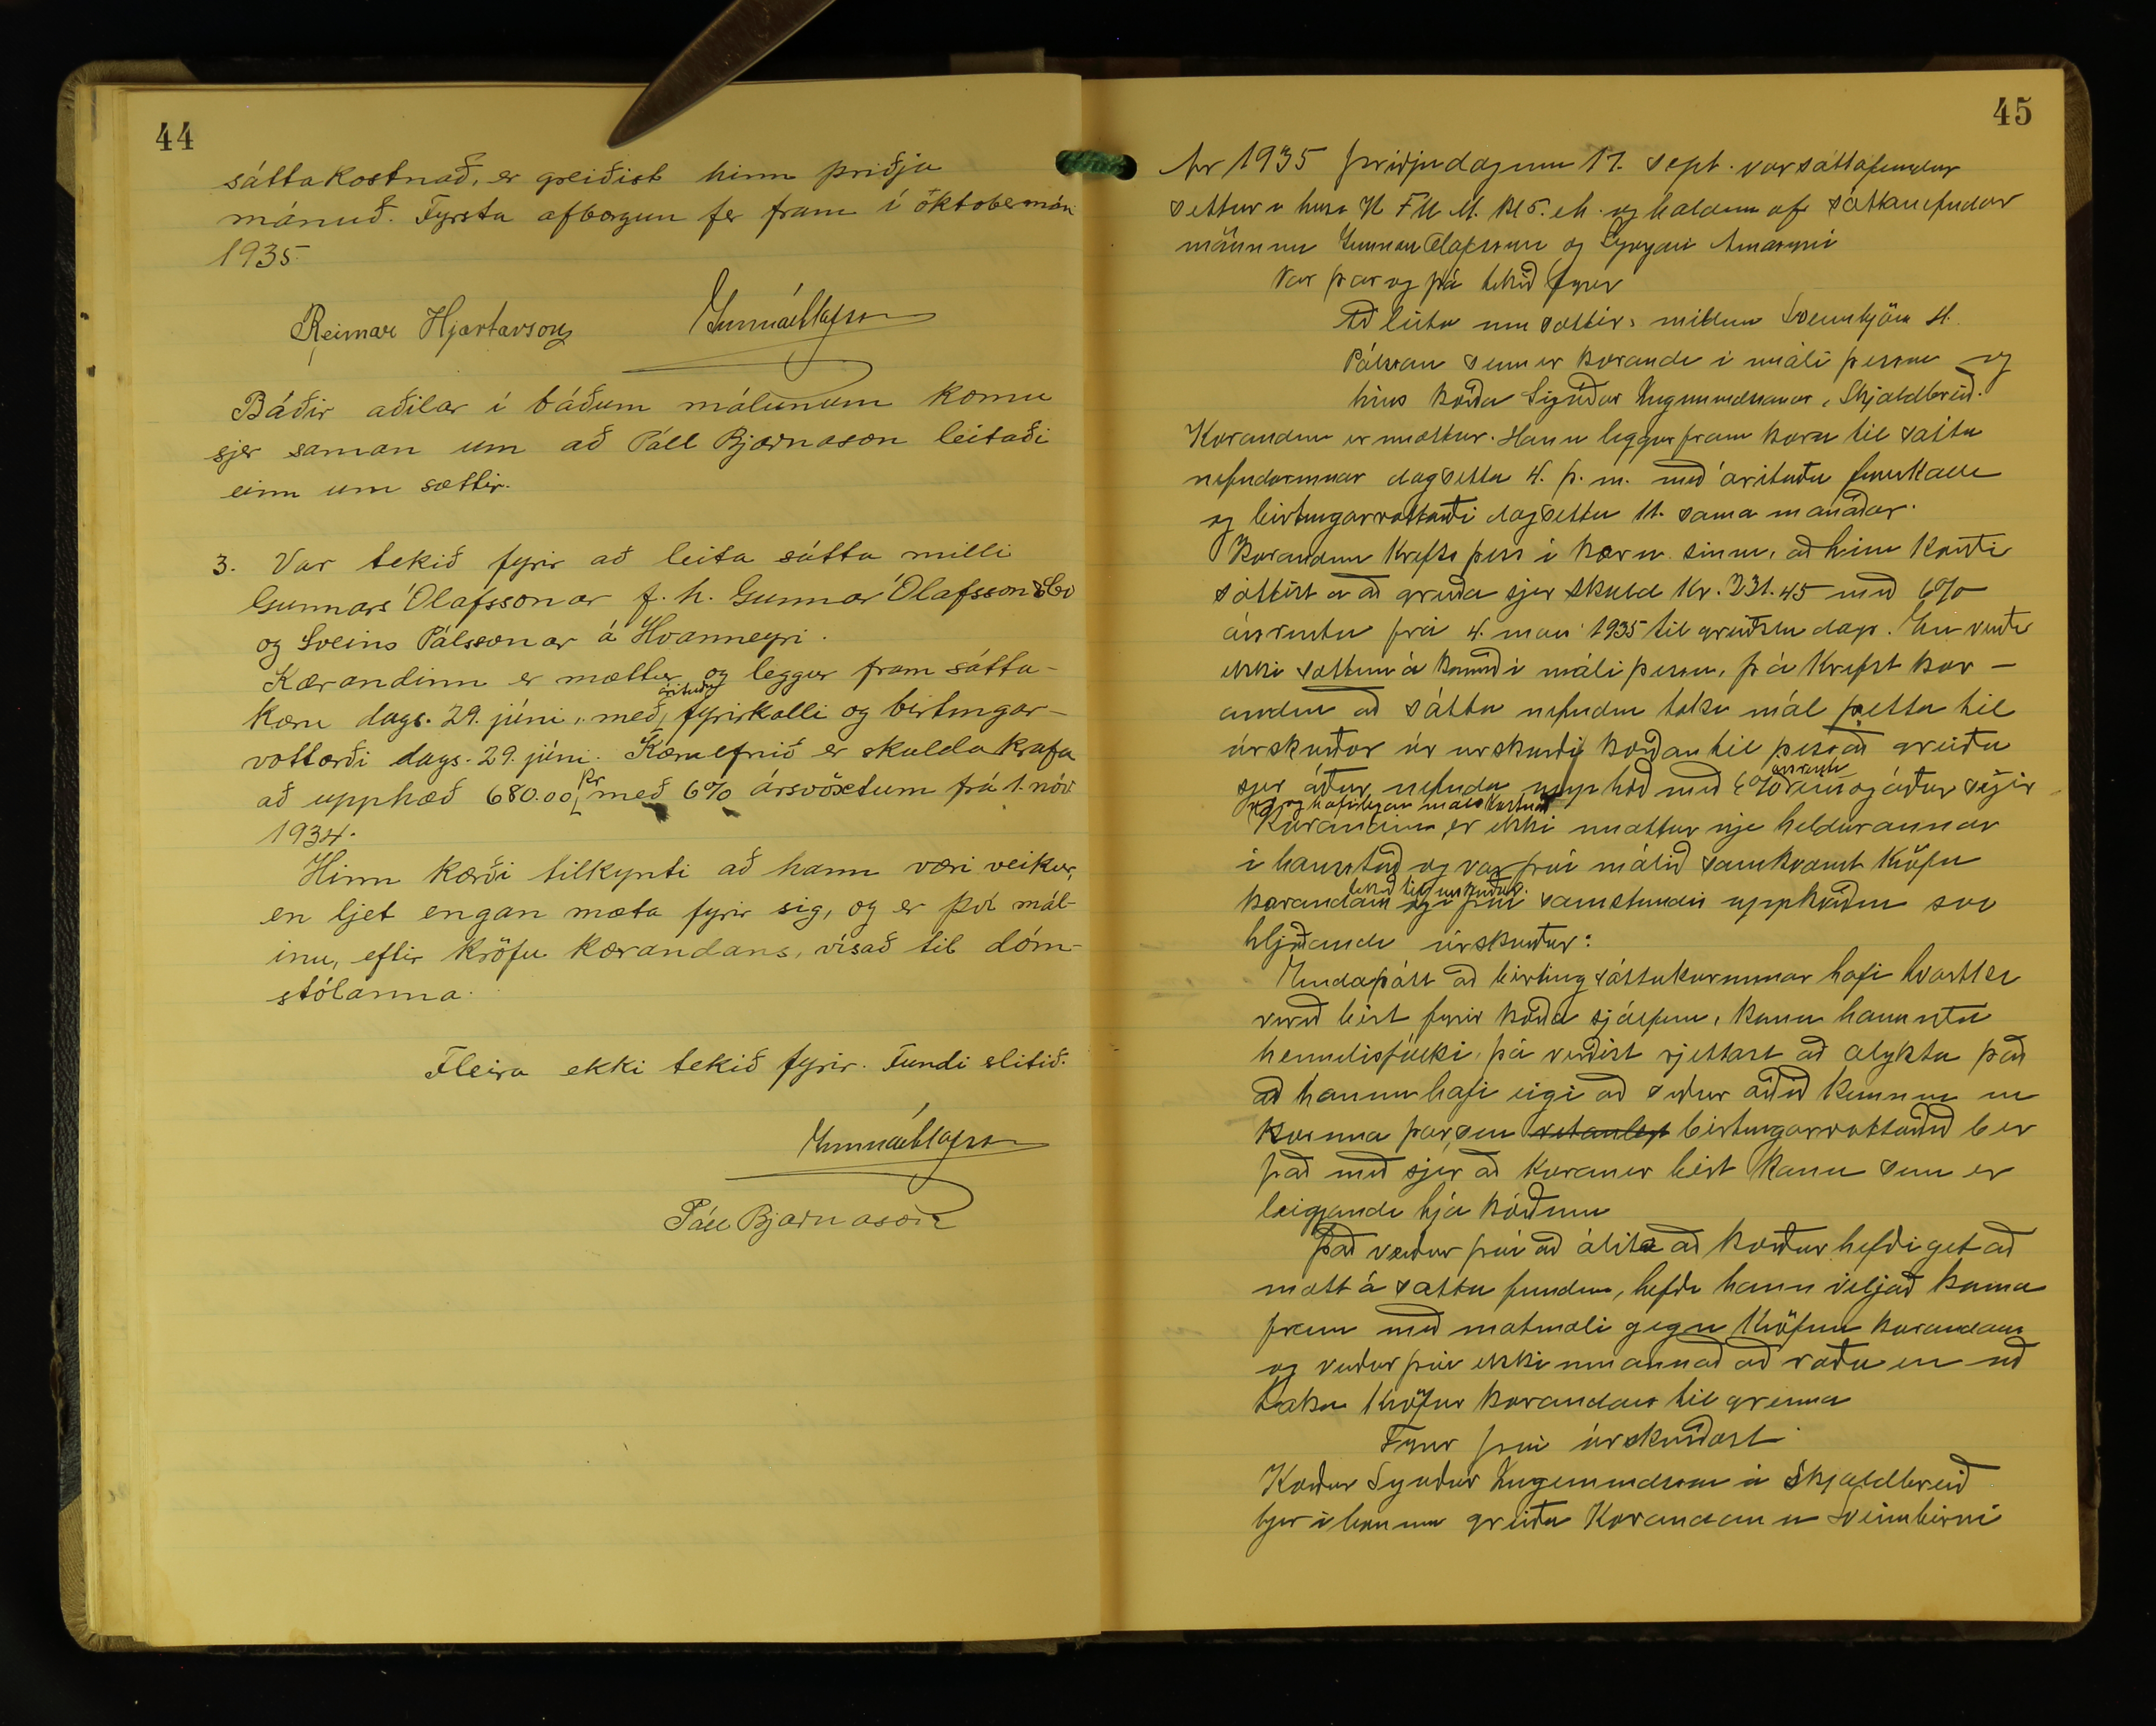 44
sáttakostnað, er greiðist hinn þriðja
mánuð. Fyrsta afborgun fer fram í októbermán.
1935.
Reimar Hjartarson Gunnar Ólafsson
Báðir aðilar í báðum málunum komu
sjer saman um að Páll Bjarnason leitaði
einn um sættir.
3. Var tekið fyrir að leita sátta milli
Gunnars Ólafssonar f. h. Gunnar Ólafsson & Co
og Sveins Pálssonar á Hvanneyri.
Kærandinn er mættur og leggur fram sátta-
kæru dags. 29. júní, með árituðu fyrirkalli og birtingar-
vottorði dags. 29. júní. Kæruefnið er skuldakrafa
að upphæð 680.00 kr með 6% ársvöxtum frá 1. nóv
1934.
Hinn kærði tilkynti að hann væri veikur,
en ljet engan mæta fyrir sig, og er því mál-
inu, eftir kröfu kærandans, vísað til dóm-
stólanna.
Fleira ekki tekið fyrir. Fundi slitið.
Gunnar Ólafsson
Páll Bjarnason
45
Ár 1935 þriðjudaginn 17. sept. var sáttafundur
settur í húsi K F U M. kl 5. e h. og haldinn af sáttanefndar
mönnum Gunnari Ólafssyni og
Var þar og þá tekið fyrir
Að leita um sættir, millum Sveinbjörn H.
Pálsson sem er kærandi í máli þessu og
hins kærða Sigurðar Ingimundssonar, Skjaldbreið.
Kærandinn er mættur. Hann leggur fram kæru til sátta
nefndarinnar dagsetta 4. þ. m. með árituðu fyrirkalli
og birtingarvottorði dagsettu 11. sama mánaðar.
Kærandinn krefst þess í kæru sinni, að hinn kærði
sættist á að greiða sjer skuld kr. 231.45 með 6%
ársrentu frá 4. maí 1935 til greiðslu dags. En verði
ekki sættum á komið í máli þessu, þá krefst kær-
andin að sátta nefndin taki mál þetta til
úrskurðar úr úrskurði kærðan til þess að greiða
sjer áður nefnda upphæð með 6% ársrentu og áður segir
og hæfilegan málskostnað
Kærandinn er ekki mættur nje heldur annar
í hans stað og var því málið samkvæmt kröfu
kærandans tekið til úrskurðar og í því samstundis uppkveðinn svo
hljóðandi úrskurður:
Endaþótt að birting sáttakærunnar hafi hvorki
verið birt fyrir kærða sjálfum, kann hans nje
heimilisfólki, þá virðist rjettast að álykta það
að honum hafi eigi að síður orðið kunnug um
kæruna þar sem birtingarvottorðið ber
það með sjer að kæran er birt kann sem er
leigjandi hjá kærðum
Það verður því að álíta að kærður hefði getað
mætt á sátta fundinn, hefði hann viljað koma
fram með mótmæli gegn kröfum kærandans
og verður því ekki um annað að ræða en að
taka kröfur kærandans til greina
Fyrir því úrskurðast
Kærður Sigurður Ingimundsson á Skjaldbreið
hjer í bænum greiði kærandanum Sveinbirni